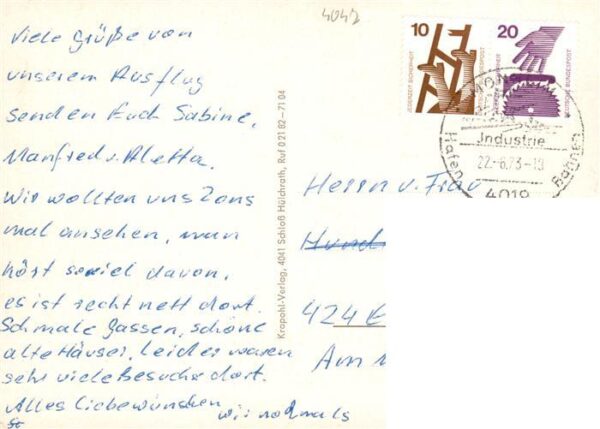 4042
Viele Grüße von
unserem Ausflug
senden Euch Sabine,
Manfred u. Aletta.
Wir wollten uns Zons
mal ansehen, man
hört soviel davon,
es ist recht nett dort.
Schmale Gassen, schöne
alte Häuser, leider waren
sehr viele Besucher dort.
Alles Liebe wünschen
wir nochmals
Kropohl-Verlag, 4041 Schloß Hülchrath, Ruf 0 21 82 – 71 04
10
JEDERZEIT SICHERHEIT
DEUTSCHE BUNDESPOST
20
DEUTSCHE BUNDESPOST
Industrie
Hafen
Bahnen
22.-6.73-19
4019
Herrn u. Frau
424 E
Am